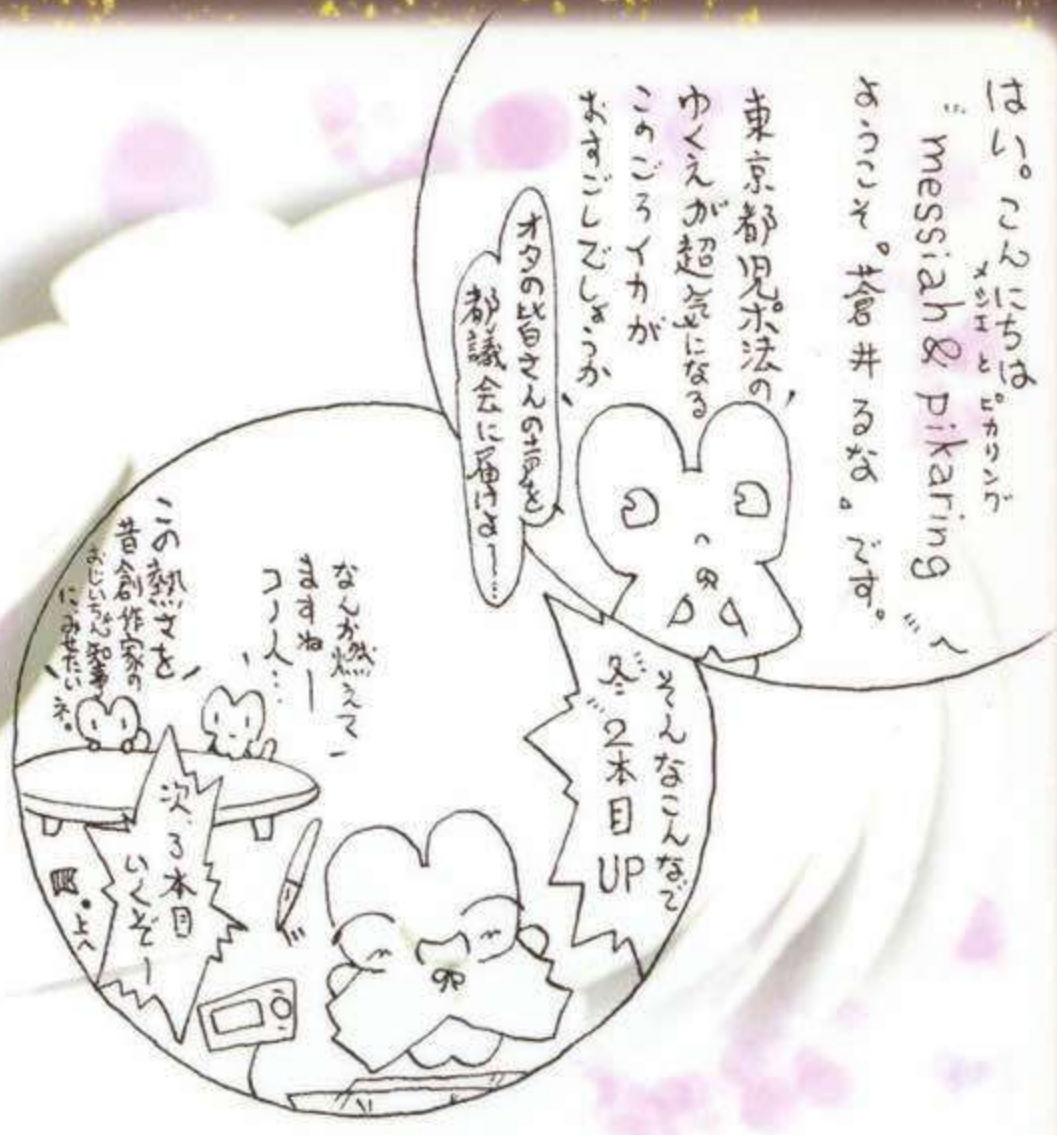 はい。こんにちは
メシエとピカリング
"messiah & pikaring"へ
ようこそ。蒼井るな。です。
東京都児ポ法の
ゆくえが超気になる
このごろイカが
おすごしでしょうか
オタの皆さんの声を
都議会に届けよ〜…
そんなこんなで
冬2本目UP
なんか燃えて
ますねー
コノ人…
この熱さを
昔創作家の
おじいちゃん知事
にみせたいネ。
次、3本目
いくぞー
上へ